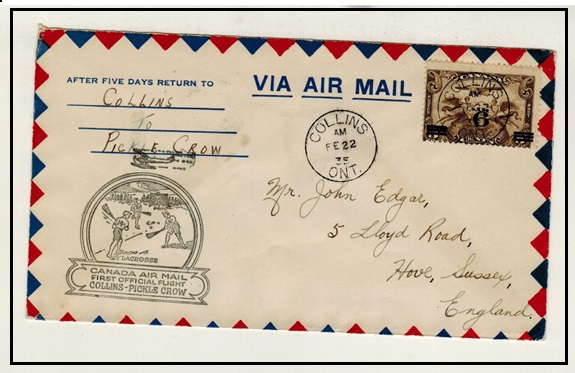 AFTER FIVE DAYS RETURN TO
Collins
To
Pickle Crow
VIA AIR MAIL
COLLINS
AM
FE 22
35
ONT.
6
Mr. John Edgar,
5 Lloyd Road,
Hove, Sussex,
England.
LACROSSE
CANADA AIR MAIL
FIRST OFFICIAL FLIGHT
COLLINS - PICKLE CROW